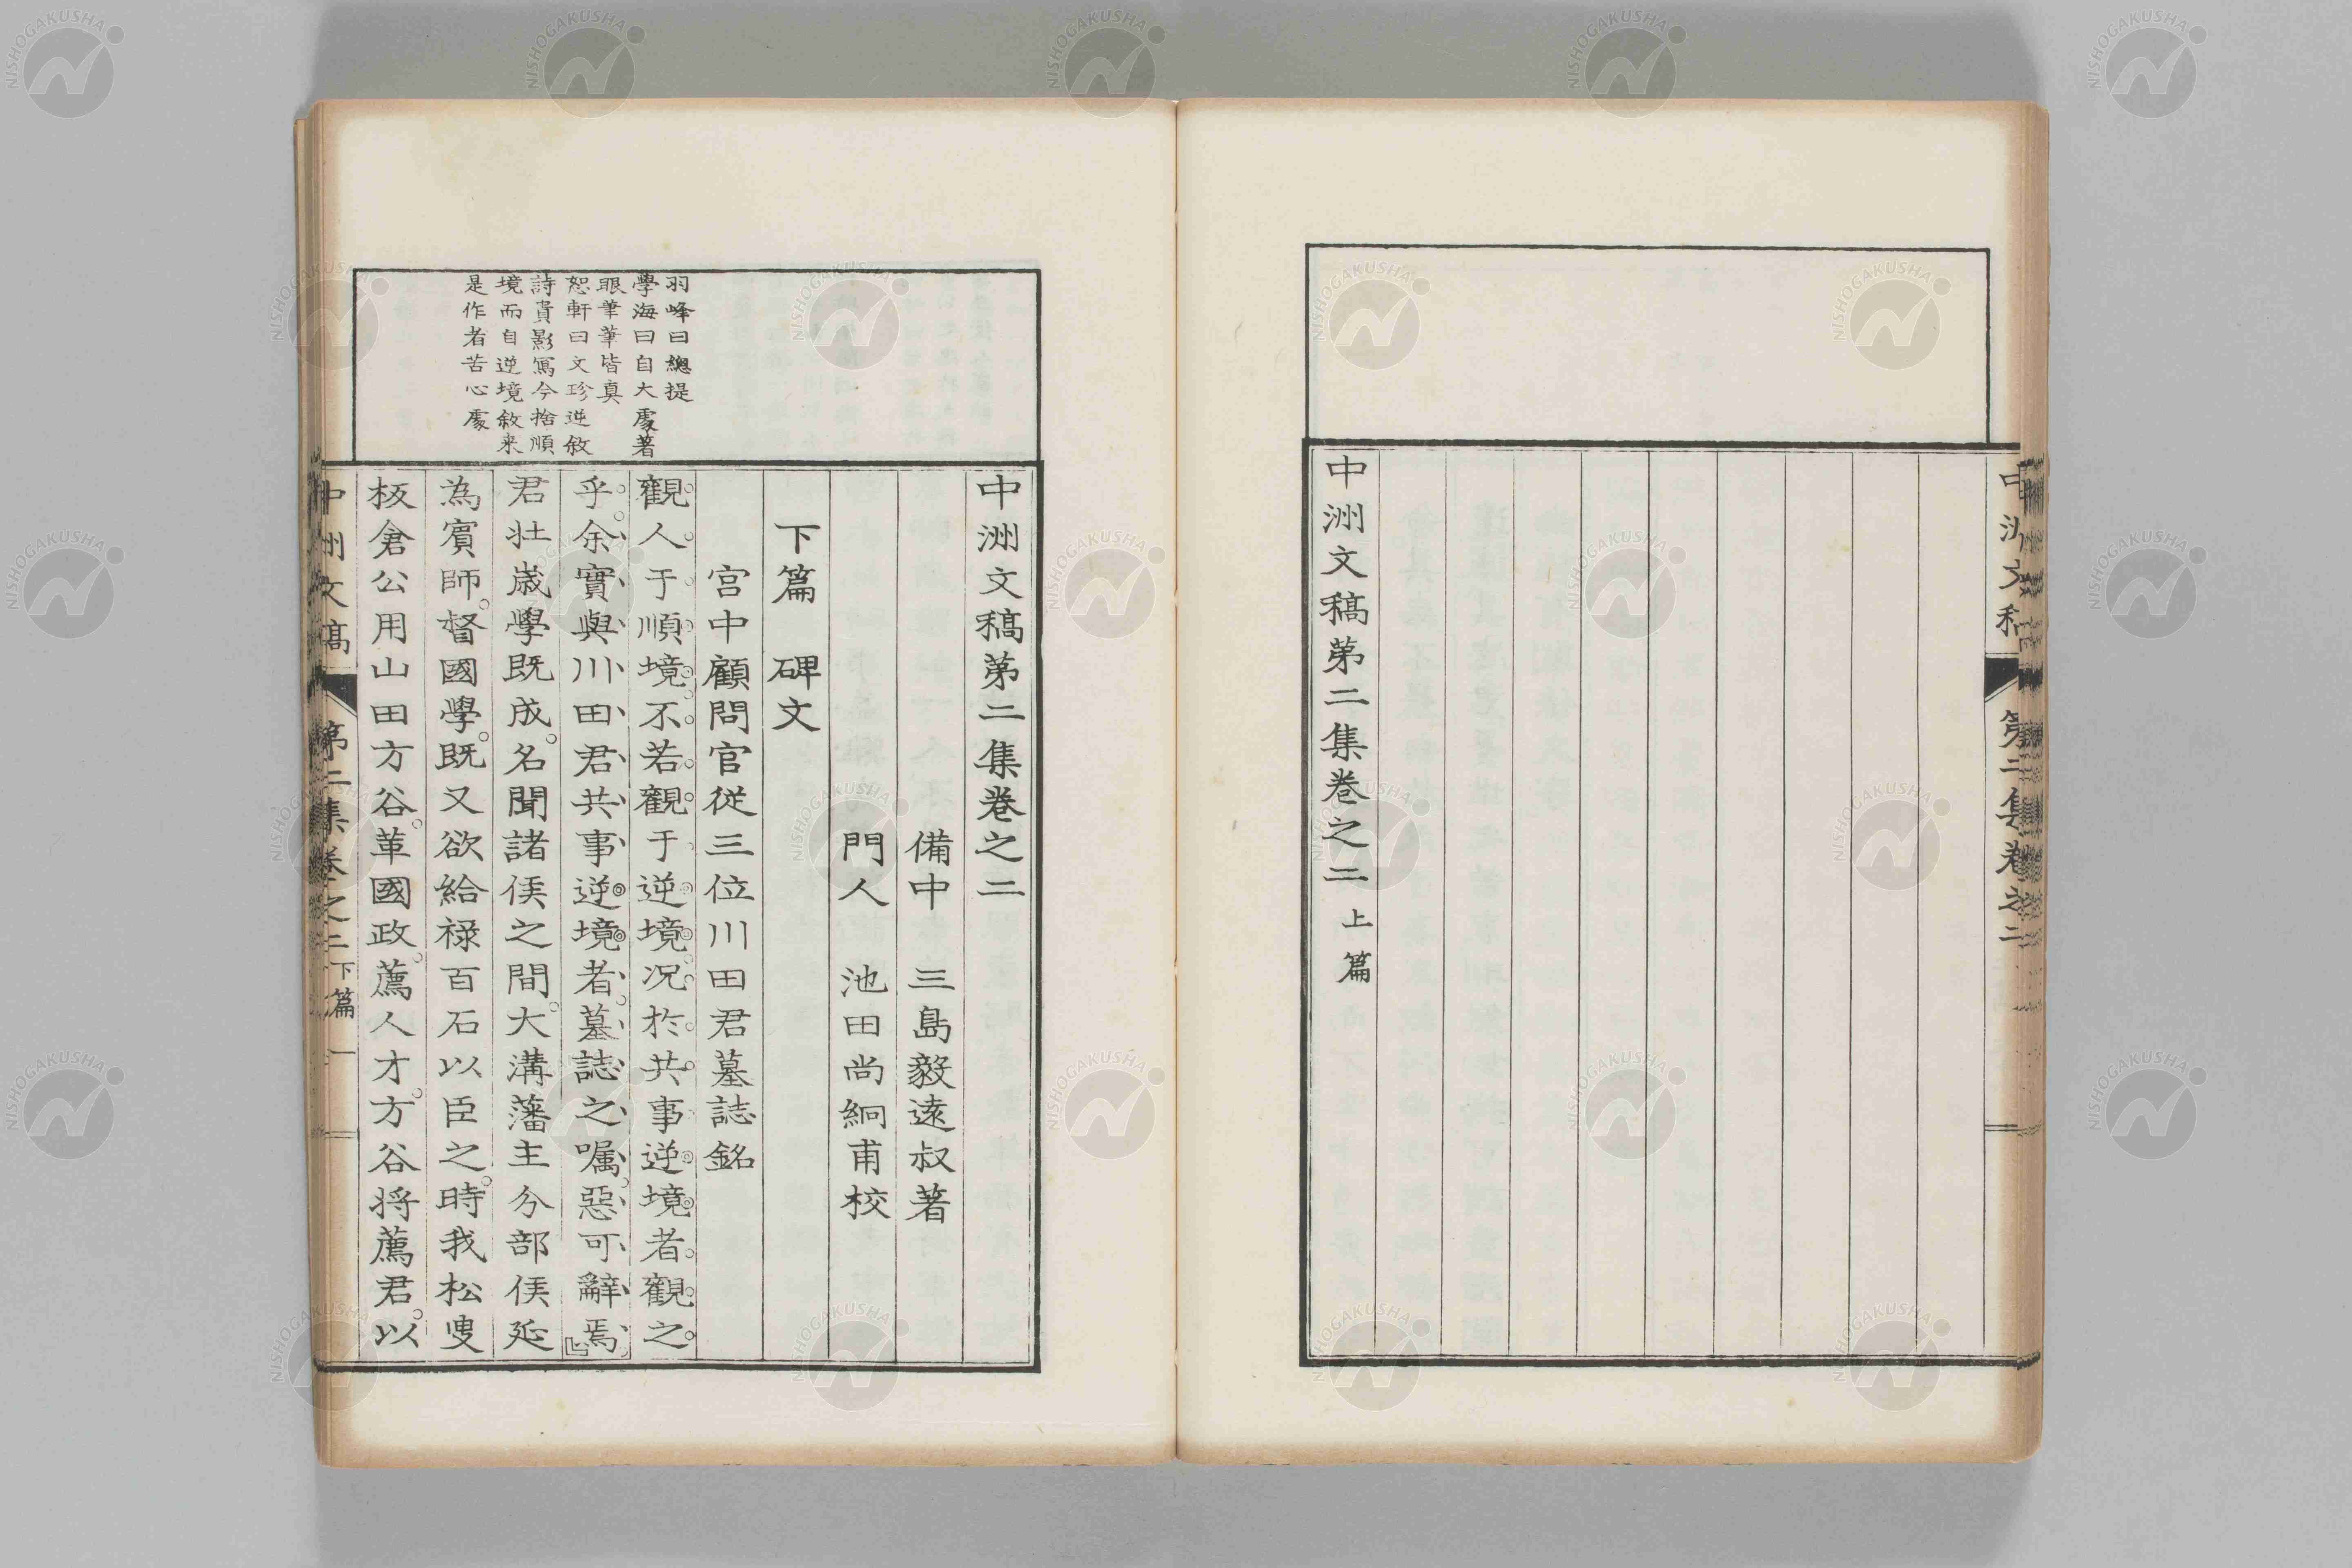 中洲文稿
第二集卷之二
中洲文稿第二集卷之二 上篇
中洲文稿第二集卷之二
備中 三島毅遠叔著
門人 池田尚絅甫校
下篇 碑文
宮中顧問官従三位川田君墓誌銘
觀人于順境不若觀于逆境况於共事逆境者觀之
乎余實與川田君共事逆境者墓誌之嘱惡可辭焉
君壮歳學既成名聞諸侯之間大溝藩主分部侯延
為賓師督國學既又欲給禄百石以臣之時我松叟
板倉公用山田方谷革國政薦人才方谷将薦君以
羽峰曰總提
學海曰自大處著
眼筆筆皆真
恕軒曰文珍逆敘
詩貴影寫今捨順
境而自逆境敘来
是作者苦心處
中洲文稿
第二集卷之二 下篇 一
NISHOGAKUSHA